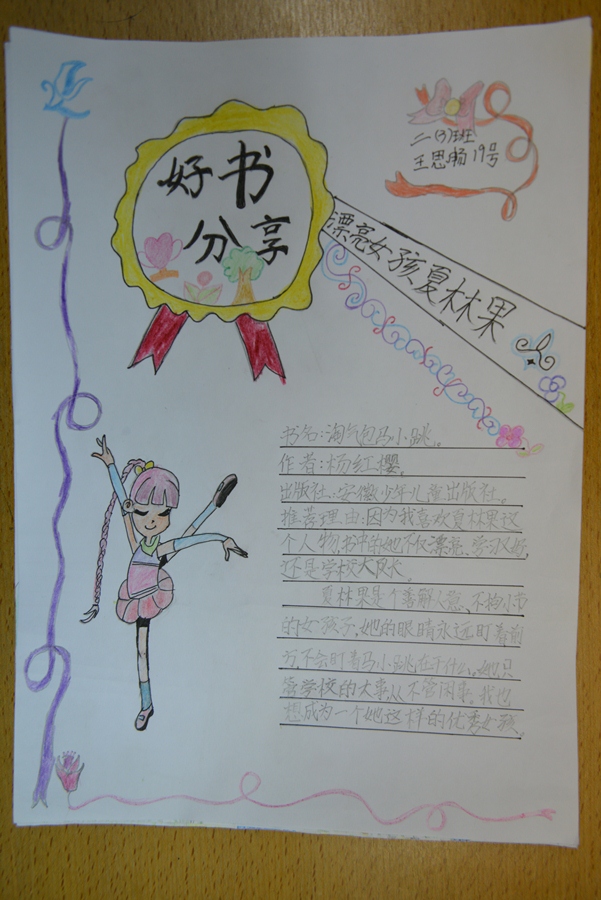 好书
分享
二(3)班
王思畅 19号
漂亮女孩夏林果
书名:淘气包马小跳。
作者:杨红樱。
出版社:安徽少年儿童出版社。
推荐理由:因为我喜欢夏林果这
个人物。书中的她不仅漂亮、学习又好,
还是学校大队长。
夏林果是个善解人意、不拘小节
的女孩子,她的眼睛永远盯着前
方,不会盯着马小跳在干什么。她只
管学校的大事,从不管闲事。我也
想成为一个她这样的优秀女孩。